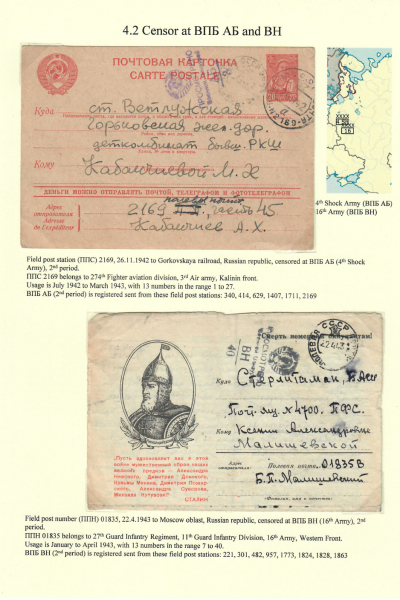 4.2 Censor at ВПБ АБ and ВН
ПОЧТОВАЯ КАРТОЧКА
CARTE POSTALE
Куда ст. Ветлужская
Горьковская жел. дор.
деткомбинат бывш. РКШ
Кому Кабакчиевой М. Х
ДЕНЬГИ МОЖНО ОТПРАВЛЯТЬ ПОЧТОЙ, ТЕЛЕГРАФОМ И ФОТОТЕЛЕГРАФОМ
Адрес
отправителя
Adresse de
l'expéditeur
2169 часть 45
Кабакчиев А. Х.
XXXX
4th Shock Army (ВПБ АБ)
16th Army (ВПБ ВН)
Field post station (ППС) 2169, 26.11.1942 to Gorkovskaya railroad, Russian republic, censored at ВПБ АБ (4th Shock
Army), 2nd period.
ППС 2169 belongs to 274th Fighter aviation division, 3rd Air army, Kalinin front.
Usage is July 1942 to March 1943, with 13 numbers in the range 1 to 27.
ВПБ АБ (2nd period) is registered sent from these field post stations: 340, 414, 629, 1407, 1711, 2169
Смерть немецким оккупантам!
ВН
40
Куда Стерлитамак, Б. Асср
Поч. ящ. № 4700. ПФС.
Кому Ксении Александровне
Малишевской
Адрес
отправителя:
Полевая почта 01835В
Б. П. Малишевский
„Пусть вдохновляет вас в этой
войне мужественный образ наших
великих предков — Александра
Невского, Димитрия Донского,
Кузьмы Минина, Димитрия Пожар-
ского, Александра Суворова,
Михаила Кутузова!"
СТАЛИН
Field post number (ППН) 01835, 22.4.1943 to Moscow oblast, Russian republic, censored at ВПБ ВН (16th Army), 2nd
period.
ППН 01835 belongs to 27th Guard Infantry Regiment, 11th Guard Infantry Division, 16th Army, Western Front.
Usage is January to April 1943, with 13 numbers in the range 7 to 40.
ВПБ ВН (2nd period) is registered sent from these field post stations: 221, 301, 482, 957, 1773, 1824, 1828, 1863